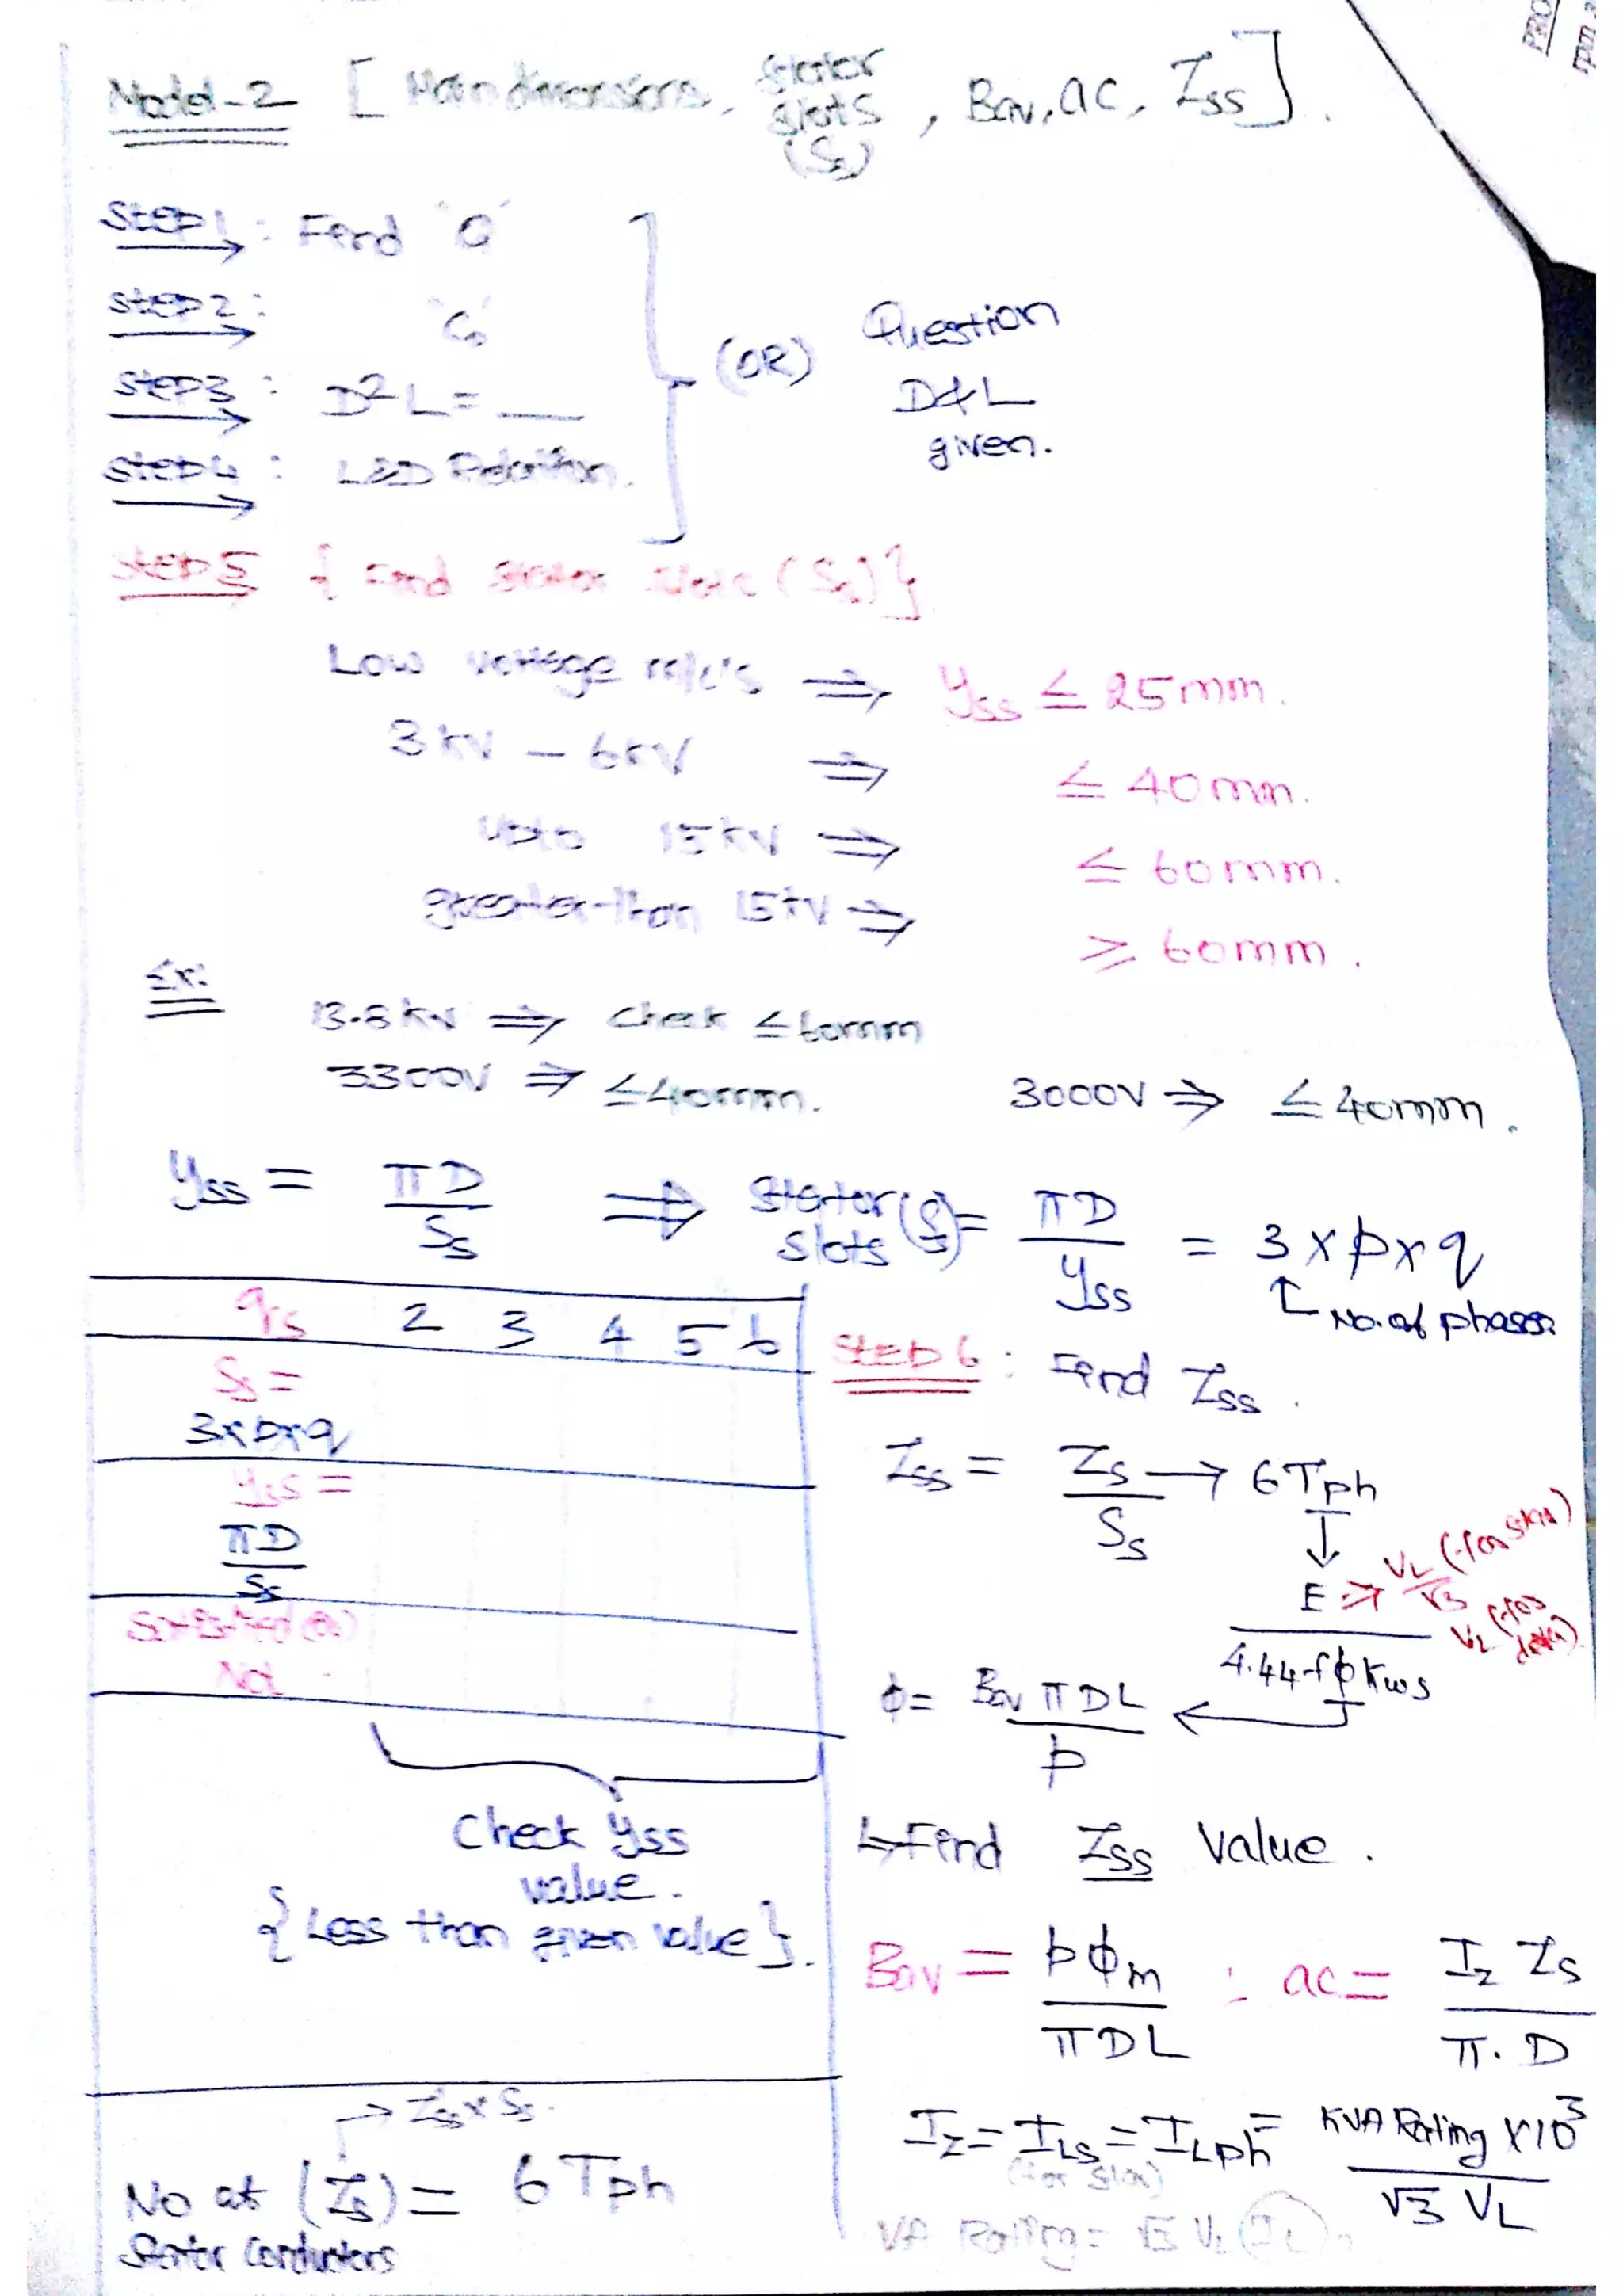 Model-2 [Main dimensions, Stator slots (Ss), Bav, ac, Zss].
Step1: Find 'Q'
Step2: 'Co'
Step3: D²L = __
Step4: L&D Relation.
(OR) Question D&L given.
Step5 {Find Stator slots (Ss)}
Low voltage m/c's ⇒ Yss ≤ 25mm.
3kV – 6kV ⇒ ≤ 40mm.
upto 15kV ⇒ ≤ 60mm.
greater than 15kV ⇒ ≥ 60mm.
Ex:
13.8kV ⇒ check ≤ 60mm
3300V ⇒ ≤ 40mm. 3000V ⇒ ≤ 40mm.
Yss = πD/Ss ⇒ Stator slots (Ss) = πD/Yss = 3 x p x q
↑ No. of phases.
qs 2 3 4 5 6
Ss =
3xpxq
Yss =
πD/Ss
Satisfied (or)
Not
Check Yss
value.
{Less than given value}.
→ Zss x Ss.
No of (Zs) = 6 Tph
Stator Conductors
Step 6: Find Zss.
Zss = Zs/Ss → 6Tph
↓
E/4.44 f ϕ Kws ⇒ VL/√3 (for star)
VL (for delta)
ϕ = Bav πDL/p ←
↳ Find Zss Value.
Bav = pϕm/πDL : ac = Iz Zs/π.D
Iz = ILs = ILph = KVA Rating x10³/√3 VL
(for star)
VA Rating = √3 VL (IL)